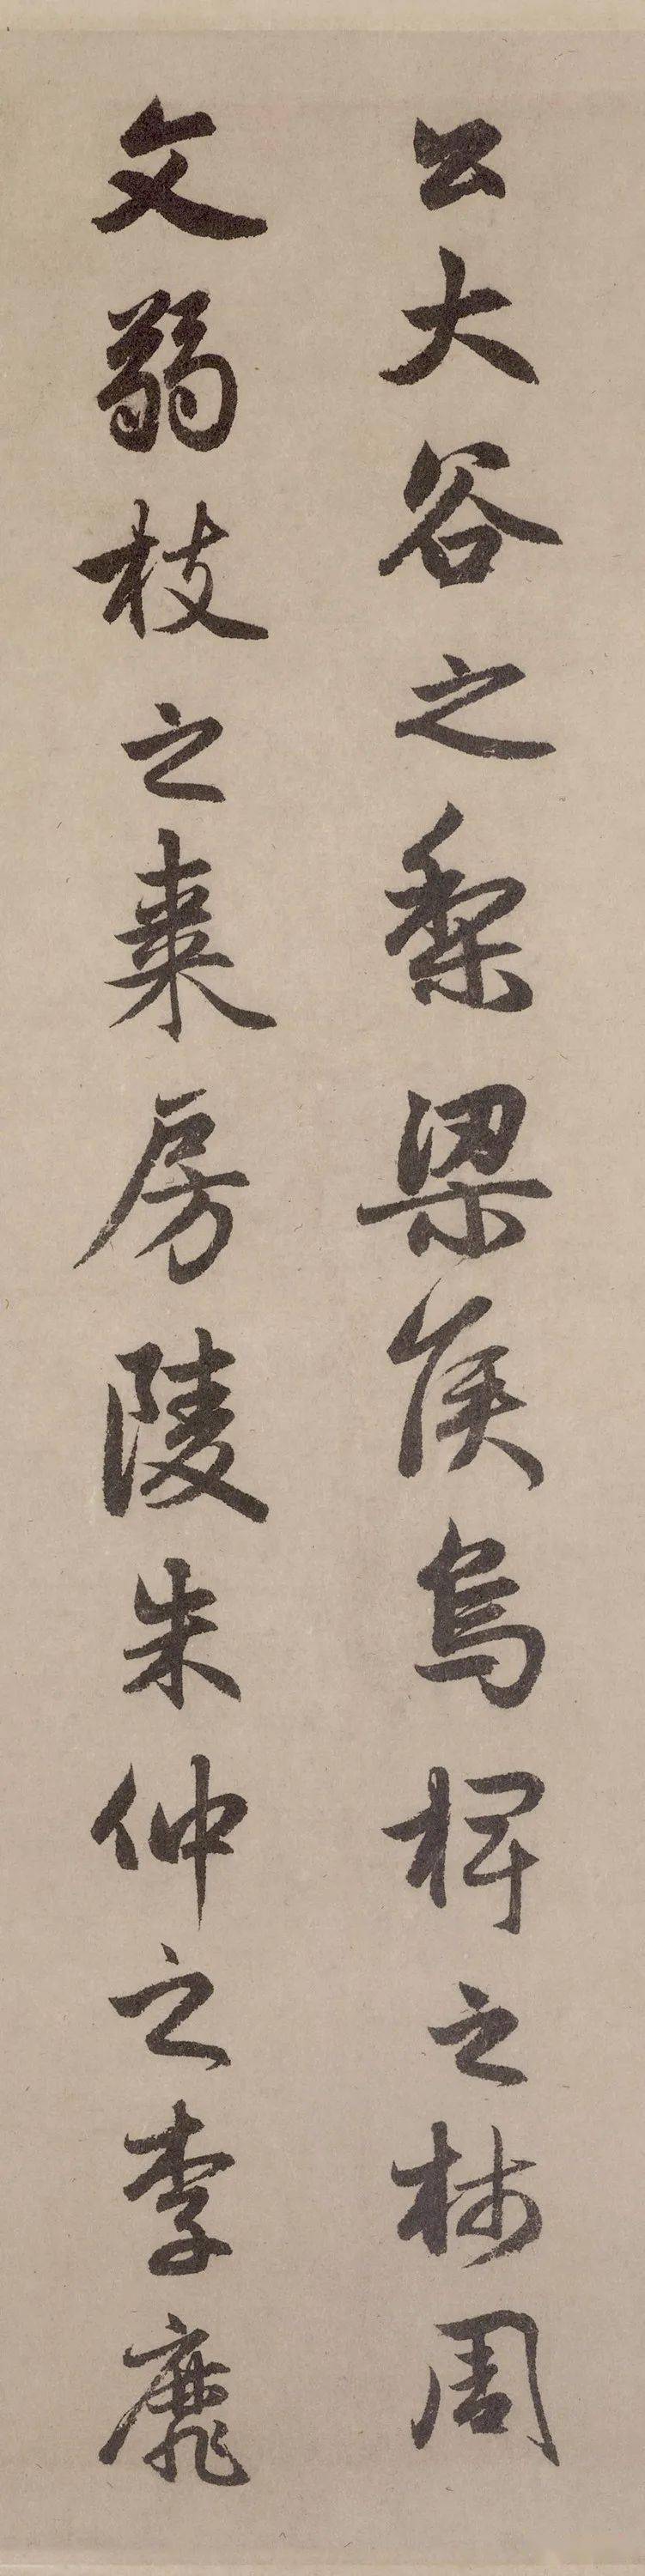 公大谷之梨梁侯烏椑之柿周
文弱枝之棗房陵朱仲之李靡